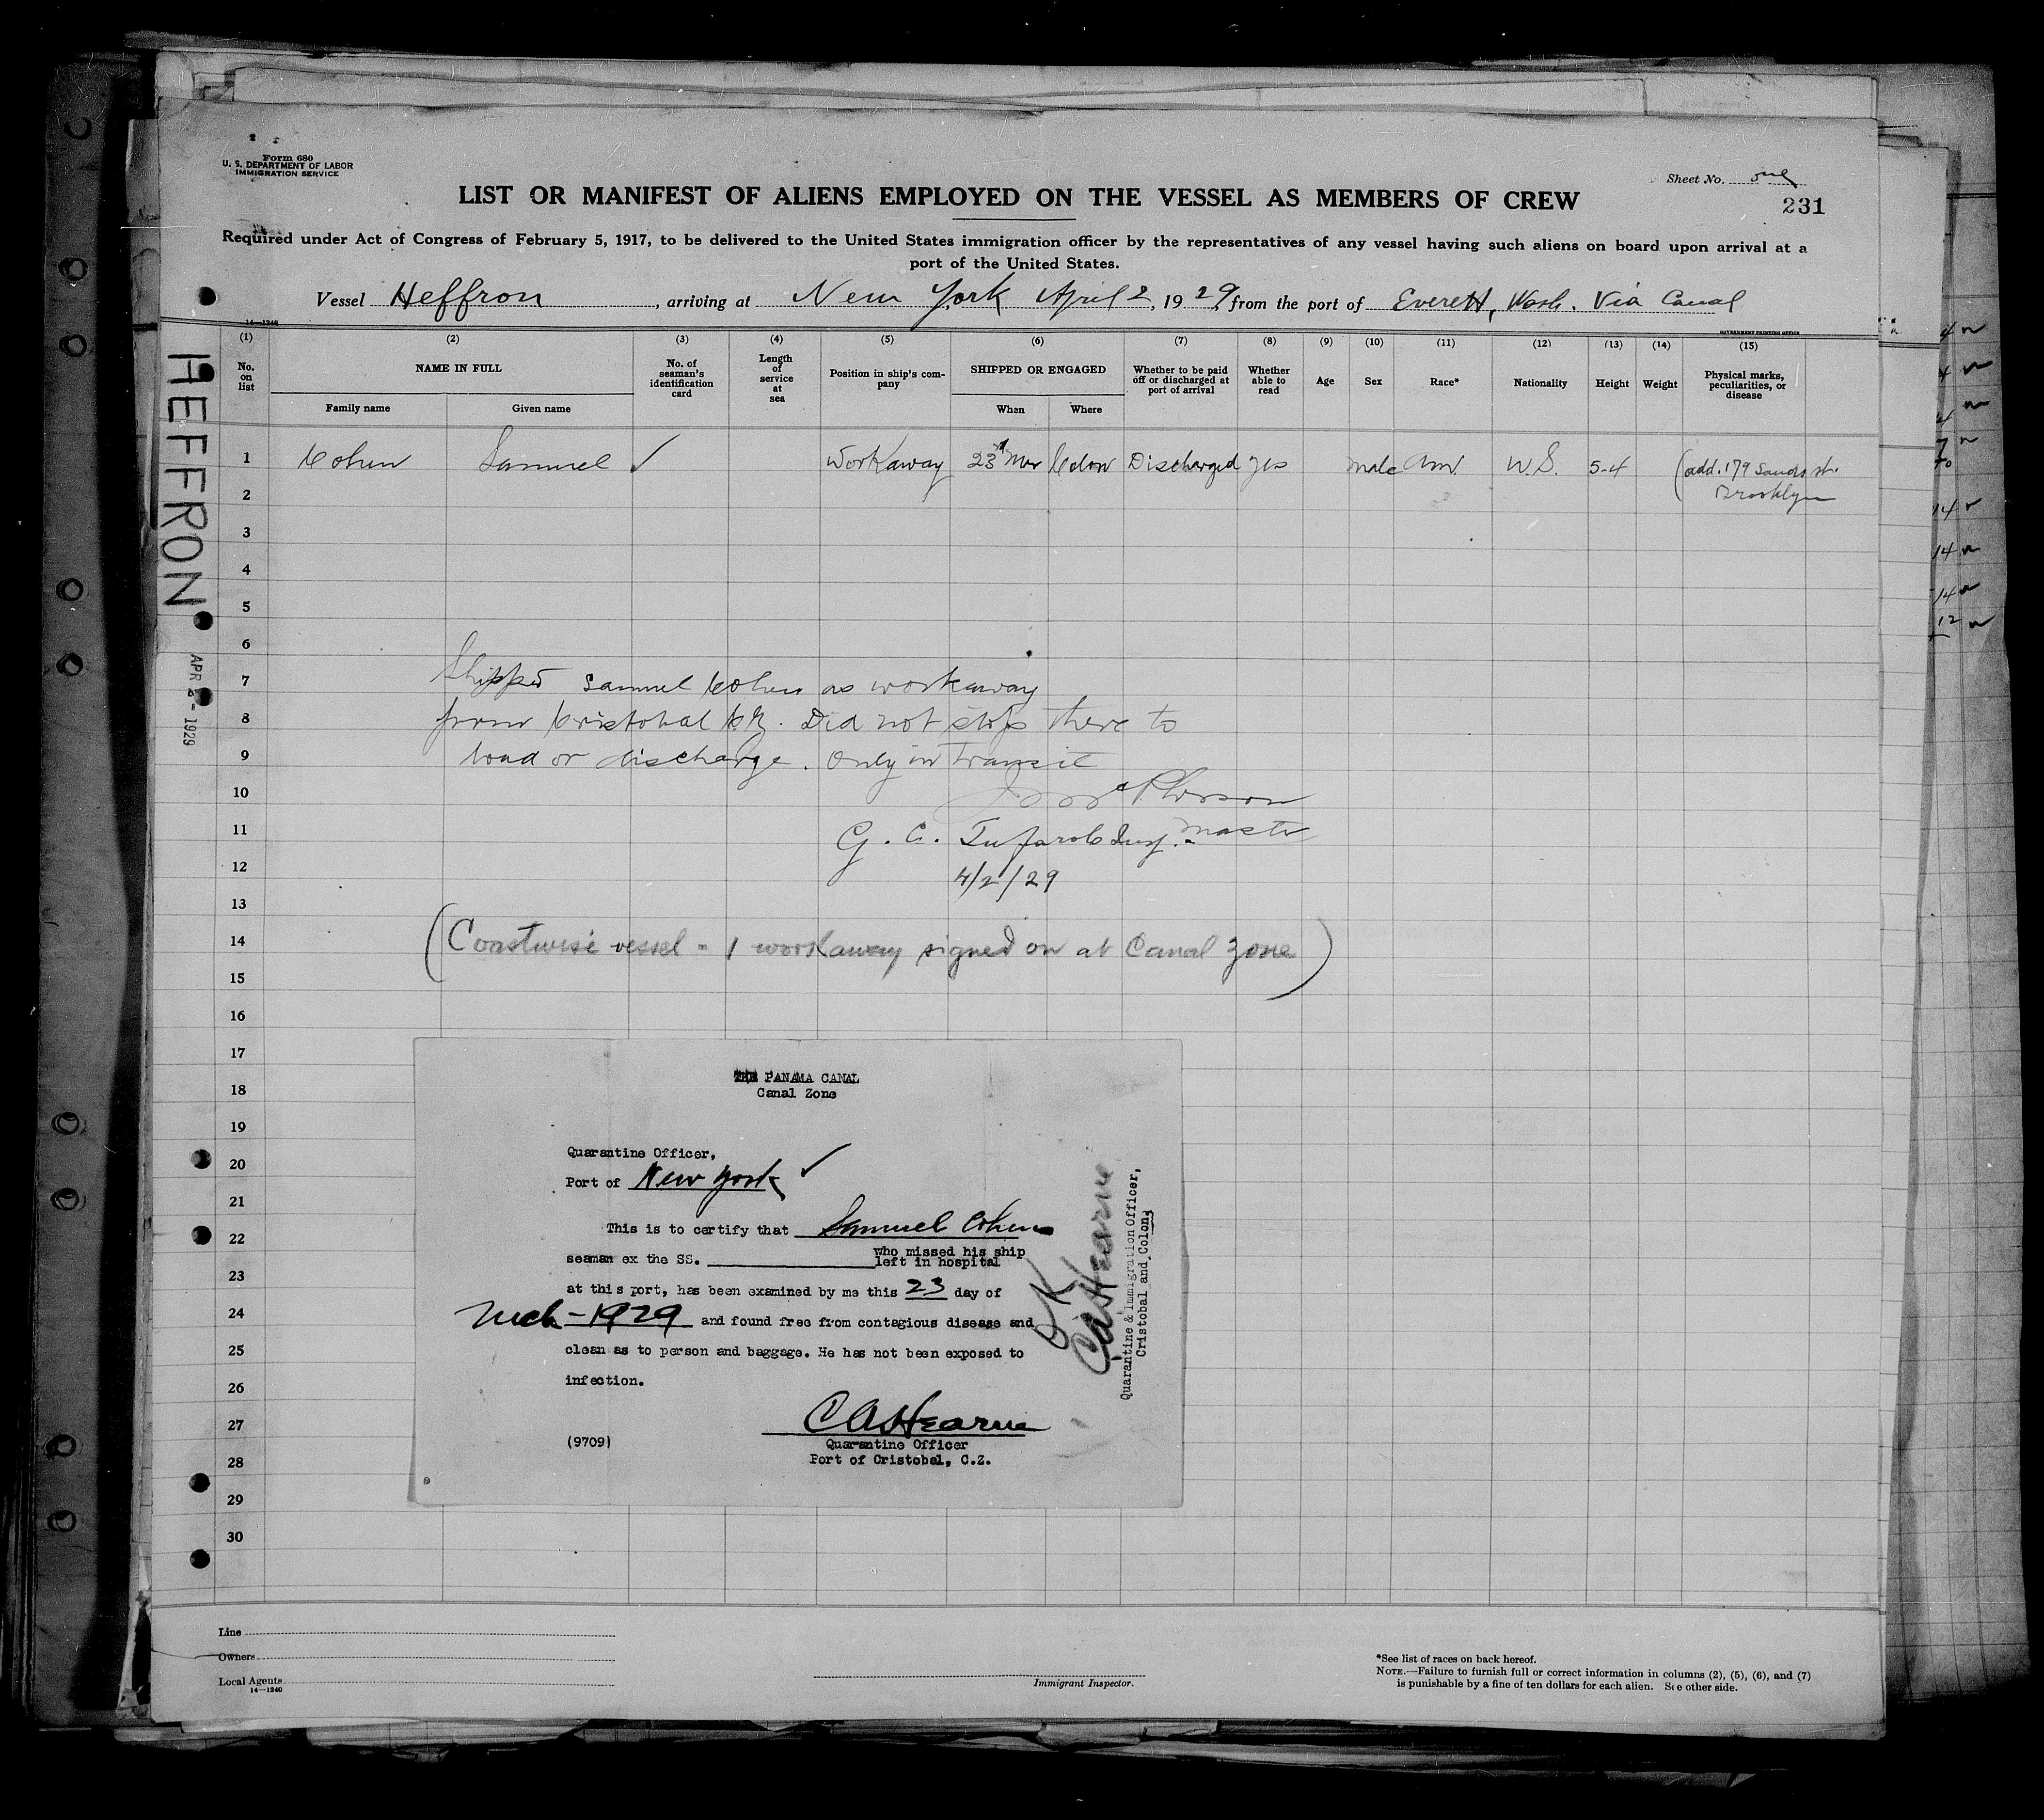 Form 680
U. S. DEPARTMENT OF LABOR
IMMIGRATION SERVICE
Sheet No. one
LIST OR MANIFEST OF ALIENS EMPLOYED ON THE VESSEL AS MEMBERS OF CREW
231
Required under Act of Congress of February 5, 1917, to be delivered to the United States immigration officer by the representatives of any vessel having such aliens on board upon arrival at a
port of the United States.
Vessel Heffron, arriving at New York April 2, 1929, from the port of Everett, Wash. Via Canal
14—1240
GOVERNMENT PRINTING OFFICE
HEFFRON
APR 2 - 1929
(1) (2) (3) (4) (5) (6) (7) (8) (9) (10) (11) (12) (13) (14) (15)
No. on list
NAME IN FULL
Family name Given name
No. of seaman's identification card
Length of service at sea
Position in ship's company
SHIPPED OR ENGAGED
When Where
Whether to be paid off or discharged at port of arrival
Whether able to read
Age Sex Race* Nationality Height Weight
Physical marks, peculiarities, or disease
1 Cohen Samuel ✓ Workaway 23 Mar Colon Discharged yes male Am U.S. 5-4 (add. 179 Sands st.
2 Brooklyn
3
4
5
6
7 Shipped Samuel Cohen as workaway
8 from Cristobal C.Z. Did not stop there to
9 load or discharge. Only in Transit
10 McPherson
11 G. C. Master
12 4/2/29
13
14 (Coastwise vessel - 1 workaway signed on at Canal Zone)
15
16
17
18
19
20
21
22
23
24
25
26
27
28
29
30
THE PANAMA CANAL
Canal Zone
Quarantine Officer,
Port of New York ✓
This is to certify that Samuel Cohen
seaman ex the SS. who missed his ship
left in hospital
at this port, has been examined by me this 23 day of
Mch - 1929 and found free from contagious disease and
clean as to person and baggage. He has not been exposed to
infection.
CAHearne
(9709)
Quarantine Officer
Port of Cristobal, C.Z.
OK
CAHearne
Quarantine & Immigration Officer,
Cristobal and Colon.
Line
Owners
Local Agents
14—1240
Immigrant Inspector.
*See list of races on back hereof.
NOTE.—Failure to furnish full or correct information in columns (2), (5), (6), and (7)
is punishable by a fine of ten dollars for each alien. See other side.